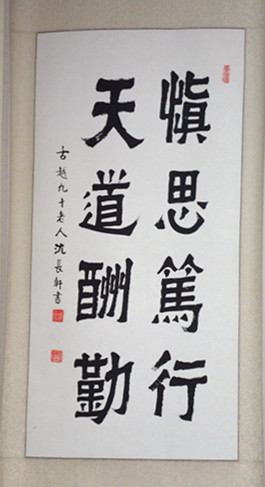 慎思篤行
天道酬勤
古越九十老人沈長軒書